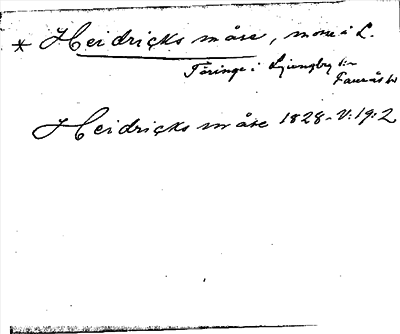 * Heidricks måse, mosse i L.
Töringe i Ljungby sn
Faurås hd
Heidricks måse 1828-V:19:2